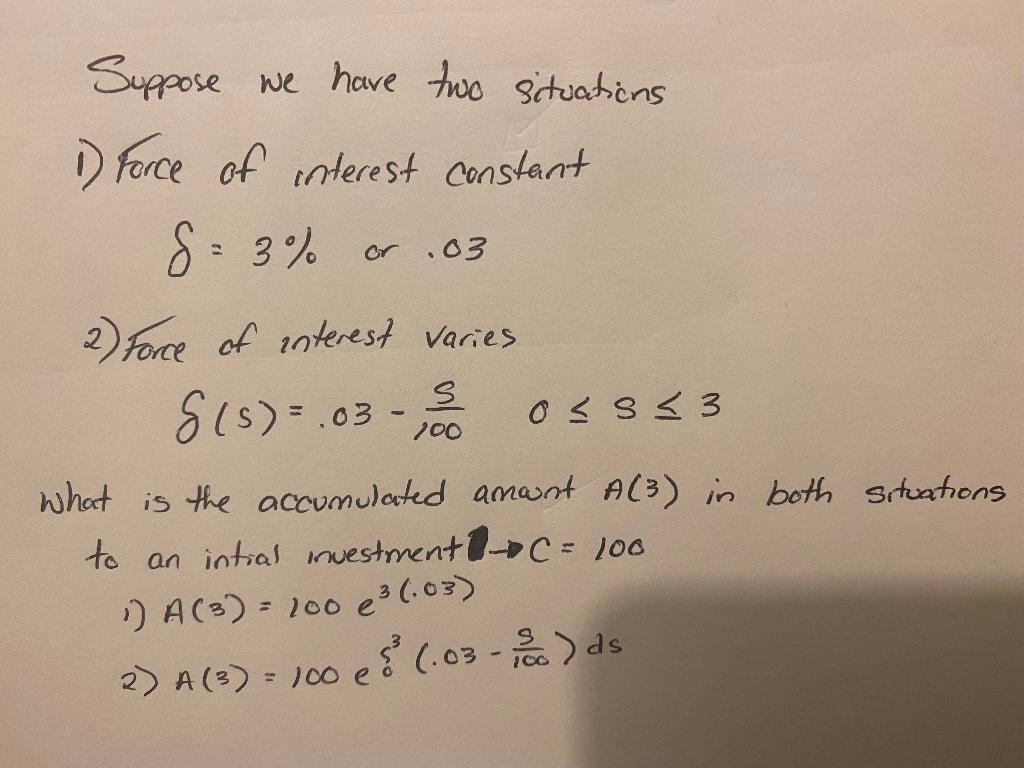 Suppose we have two situations
1) Force of interest constant
δ = 3% or .03
2) Force of interest varies
δ(s) = .03 - s/100 0 ≤ s ≤ 3
What is the accumulated amount A(3) in both situations
to an intial investment → C = 100
1) A(3) = 100 e^3(.03)
2) A(3) = 100 e^∫_0^3 (.03 - s/100) ds